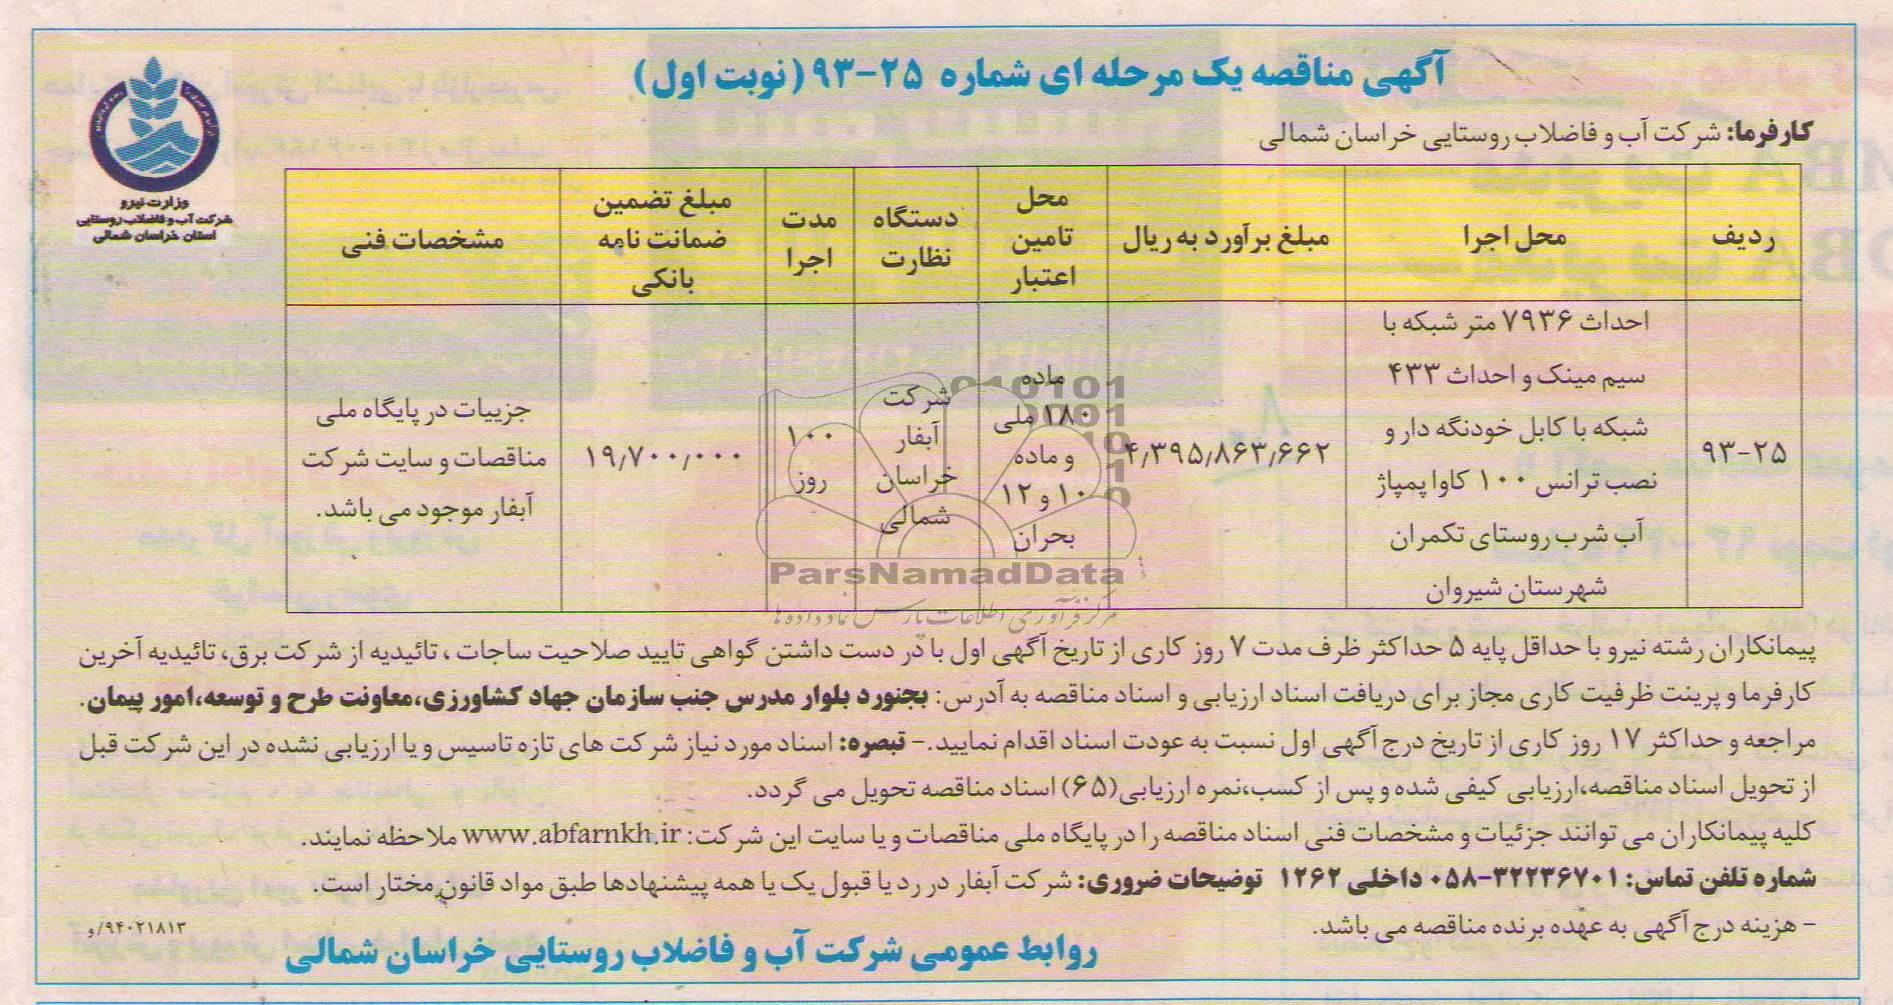 آگهی مناقصه یک مرحله ای شماره ۲۵-۹۳ (نوبت اول)
وزارت نیرو
شرکت آب و فاضلاب روستایی
استان خراسان شمالی
کارفرما: شرکت آب و فاضلاب روستایی خراسان شمالی
ردیف
محل اجرا
مبلغ برآورد به ریال
محل
تامین
اعتبار
دستگاه
نظارت
مدت
اجرا
مبلغ تضمین
ضمانت نامه
بانکی
مشخصات فنی
۹۳-۲۵
احداث ۷۹۳۶ متر شبکه با
سیم مینک و احداث ۴۳۳
شبکه با کابل خودنگه دار و
نصب ترانس ۱۰۰ کاوا پمپاژ
آب شرب روستای تکمران
شهرستان شیروان
۴٫۳۹۵٫۸۶۳٫۶۶۲
ماده
۱۸۰ ملی
و ماده
۱۰ و ۱۲
بحران
شرکت
آبفار
خراسان
شمالی
۱۰۰
روز
۱۹٫۷۰۰٫۰۰۰
جزییات در پایگاه ملی
مناقصات و سایت شرکت
آبفار موجود می باشد.
ParsNamadData
مرکز فرآوری اطلاعات پارس نماد داده ها
پیمانکاران رشته نیرو با حداقل پایه ۵ حداکثر ظرف مدت ۷ روز کاری از تاریخ آگهی اول با در دست داشتن گواهی تایید صلاحیت ساجات ، تائیدیه از شرکت برق، تائیدیه آخرین
کارفرما و پرینت ظرفیت کاری مجاز برای دریافت اسناد ارزیابی و اسناد مناقصه به آدرس: بجنورد بلوار مدرس جنب سازمان جهاد کشاورزی،معاونت طرح و توسعه،امور پیمان.
مراجعه و حداکثر ۱۷ روز کاری از تاریخ درج آگهی اول نسبت به عودت اسناد اقدام نمایید.- تبصره: اسناد مورد نیاز شرکت های تازه تاسیس و یا ارزیابی نشده در این شرکت قبل
از تحویل اسناد مناقصه،ارزیابی کیفی شده و پس از کسب،نمره ارزیابی(۶۵) اسناد مناقصه تحویل می گردد.
کلیه پیمانکاران می توانند جزئیات و مشخصات فنی اسناد مناقصه را در پایگاه ملی مناقصات و یا سایت این شرکت: www.abfarnkh.ir ملاحظه نمایند.
شماره تلفن تماس: ۳۲۲۳۶۷۰۱-۰۵۸ داخلی ۱۲۶۲ توضیحات ضروری: شرکت آبفار در رد یا قبول یک یا همه پیشنهادها طبق مواد قانون مختار است.
- هزینه درج آگهی به عهده برنده مناقصه می باشد.
۹۴۰۲۱۸۱۳/و
روابط عمومی شرکت آب و فاضلاب روستایی خراسان شمالی